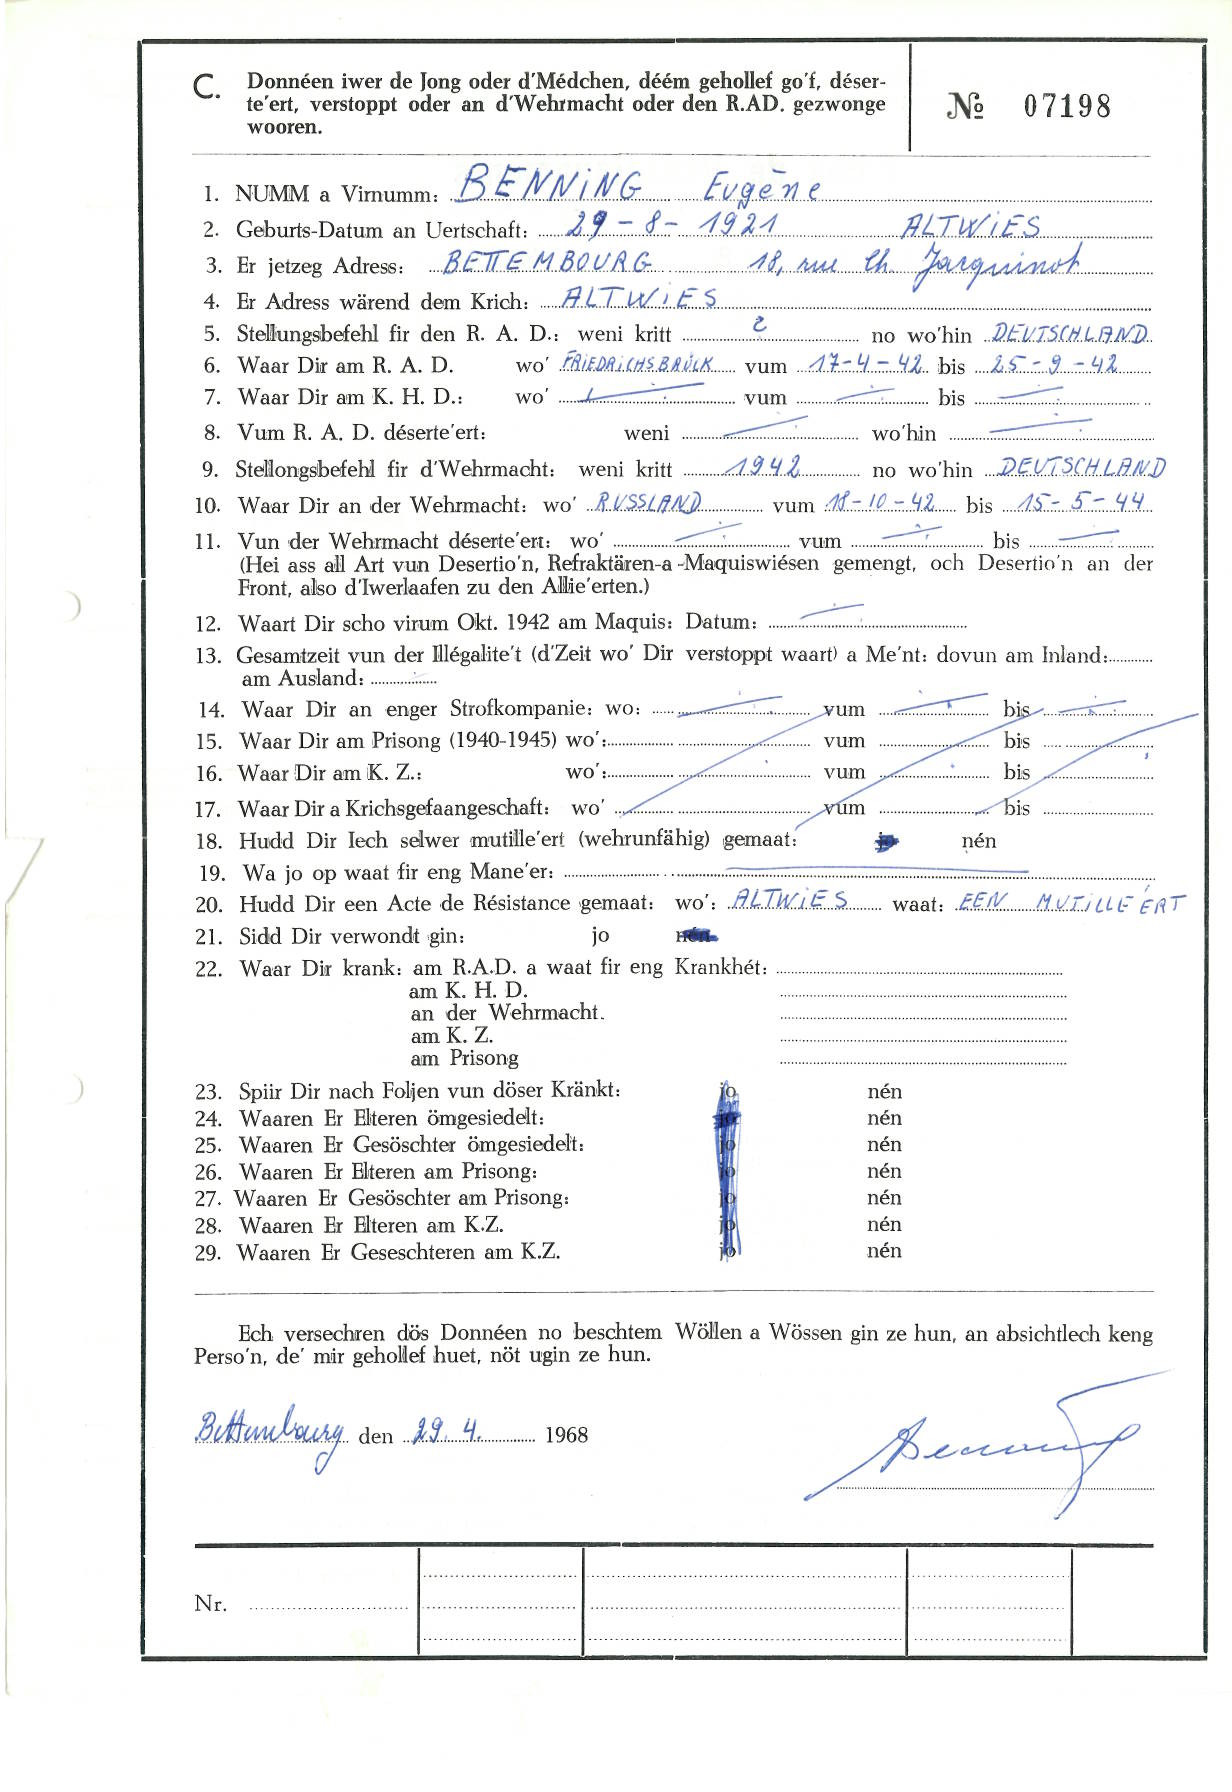 C. Donnéen iwer de Jong oder d'Médchen, déém gehollef go'f, déser-
te'ert, verstoppt oder an d'Wehrmacht oder den R.AD. gezwonge
wooren.
№ 07198
1. NUMM a Virnumm: BENNING Eugène
2. Geburts-Datum an Uertschaft: 29-8-1921 ALTWIES
3. Er jetzeg Adress: BETTEMBOURG 18, rue Ch. Jacquinot
4. Er Adress wärend dem Krich: ALTWIES
5. Stellungsbefehl fir den R. A. D.: weni kritt ? no wo'hin DEUTSCHLAND
6. Waar Dir am R. A. D. wo' FRIEDRICHSBRÜCK vum 17-4-42 bis 25-9-42
7. Waar Dir am K. H. D.: wo' vum bis
8. Vum R. A. D. déserte'ert: weni wo'hin
9. Stellongsbefehl fir d'Wehrmacht: weni kritt 1942 no wo'hin DEUTSCHLAND
10. Waar Dir an der Wehrmacht: wo' RUSSLAND vum 18-10-42 bis 15-5-44
11. Vun der Wehrmacht déserte'ert: wo' vum bis
(Hei ass all Art vun Desertio'n, Refraktären-a-Maquiswiésen gemengt, och Desertio'n an der
Front, also d'Iwerlaafen zu den Allie'erten.)
12. Waart Dir scho virum Okt. 1942 am Maquis: Datum:
13. Gesamtzeit vun der Illégalite't (d'Zeit wo' Dir verstoppt waart) a Me'nt: dovun am Inland:
am Ausland:
14. Waar Dir an enger Strofkompanie: wo: vum bis
15. Waar Dir am Prisong (1940-1945) wo': vum bis
16. Waar Dir am K. Z.: wo': vum bis
17. Waar Dir a Krichsgefaangeschaft: wo' vum bis
18. Hudd Dir Iech selwer mutille'ert (wehrunfähig) gemaat: jo nén
19. Wa jo op waat fir eng Mane'er:
20. Hudd Dir een Acte de Résistance gemaat: wo': ALTWIES waat: EEN MUTILLE'ERT
21. Sidd Dir verwondt gin: jo nén
22. Waar Dir krank: am R.A.D. a waat fir eng Krankhét:
am K. H. D.
an der Wehrmacht.
am K. Z.
am Prisong
23. Spiir Dir nach Foljen vun döser Kränkt: jo nén
24. Waaren Er Elteren ömgesiedelt: jo nén
25. Waaren Er Gesöschter ömgesiedelt: jo nén
26. Waaren Er Elteren am Prisong: jo nén
27. Waaren Er Gesöschter am Prisong: jo nén
28. Waaren Er Elteren am K.Z. jo nén
29. Waaren Er Geseschteren am K.Z. jo nén
Ech versechren dös Donnéen no beschtem Wöllen a Wössen gin ze hun, an absichtlech keng
Perso'n, de' mir gehollef huet, nöt ugin ze hun.
Bettembourg den 29.4. 1968
Benning
Nr.